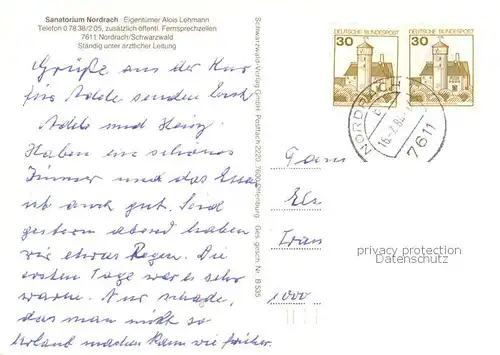 Sanatorium Nordrach · Eigentümer Alois Lehmann
Telefon 0 78 38/2 05, zusätzlich öffentl. Fernsprechzellen
7611 Nordrach/Schwarzwald
Ständig unter ärztlicher Leitung
Grüße aus der Kur
für Adde senden Euch
Adde und Heinz.
Haben ein schönes
Zimmer und das Essen
ist auch gut. Sind
gestern abend haben
wir etwas Regen. Die
ersten Tage war es sehr
warm. Nur schade,
das man nicht so
Urlaub machen kann wie früher.
Schwarzwald-Verlag GmbH Postfach 2220 7600 Offenburg Ges. gesch. Nr. B 535
DEUTSCHE BUNDESPOST
30
DEUTSCHE BUNDESPOST
30
NORDRACH
7611
Fam
Tran
1000
privacy protection
Datenschutz